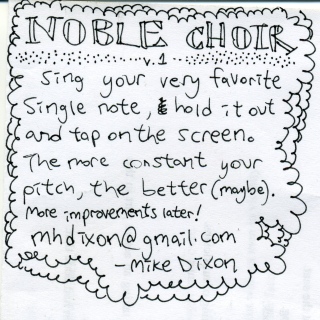 NOBLE CHOIR
v.1
Sing your very favorite
Single note, & hold it out
and tap on the screen.
The more constant your
pitch, the better (maybe).
More improvements later!
mhdixon@gmail.com
- Mike Dixon